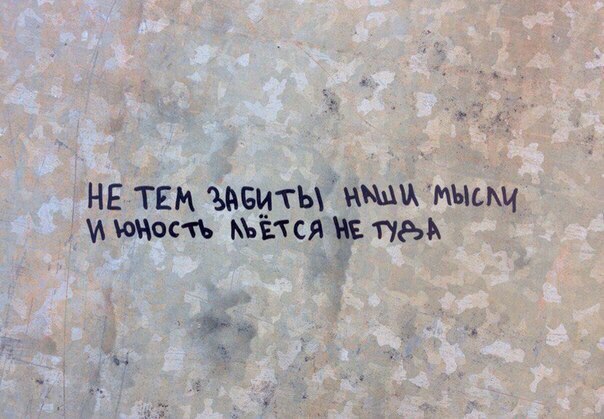 НЕ ТЕМ ЗАБИТЫ НАШИ МЫСЛИ
И ЮНОСТЬ ЛЬЁТСЯ НЕ ТУДА